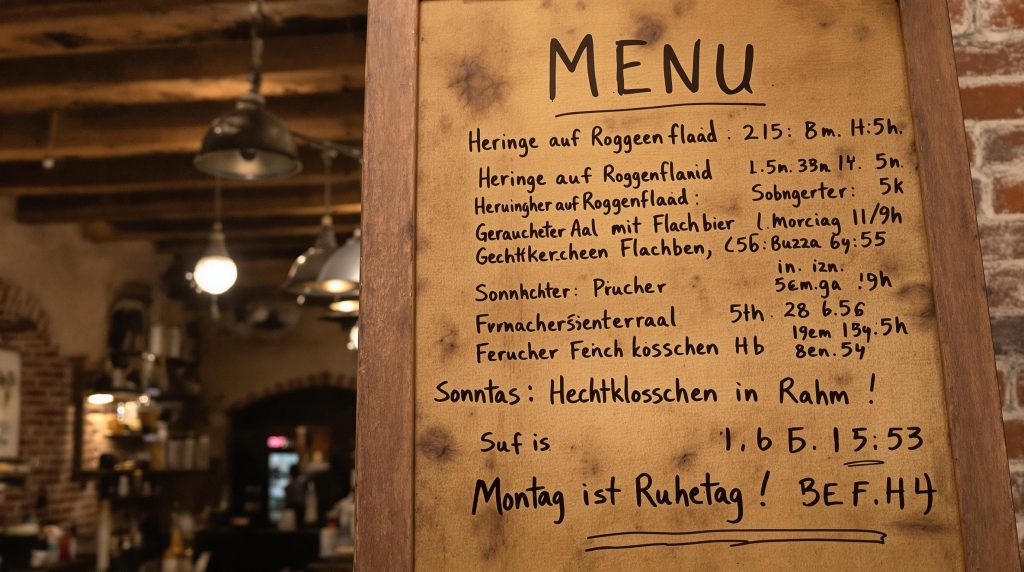 MENU
Heringe auf Roggeen flaad : 215: 8m. H:5h.
Heringe auf Roggenflanid 1.5n. 33n 14. 5n.
Heruingher auf Roggenflaad: Sobngerter: 5k
Geraucheter Aal mit Flachbier l. Morciag 11/9h
Flachben, 656: Buzza 6y:55
in. izn.
Sonnhchter: Prucher 5em.ga !9h
5th. 28 6.56
19em 15y.5h
Ferucher Feinch kosschen Hb 8en. 54
Sonntas: Hechtklosschen in Rahm !
Suf is 1, 6 5. 15:53
Montag ist Ruhetag ! BEF.H4